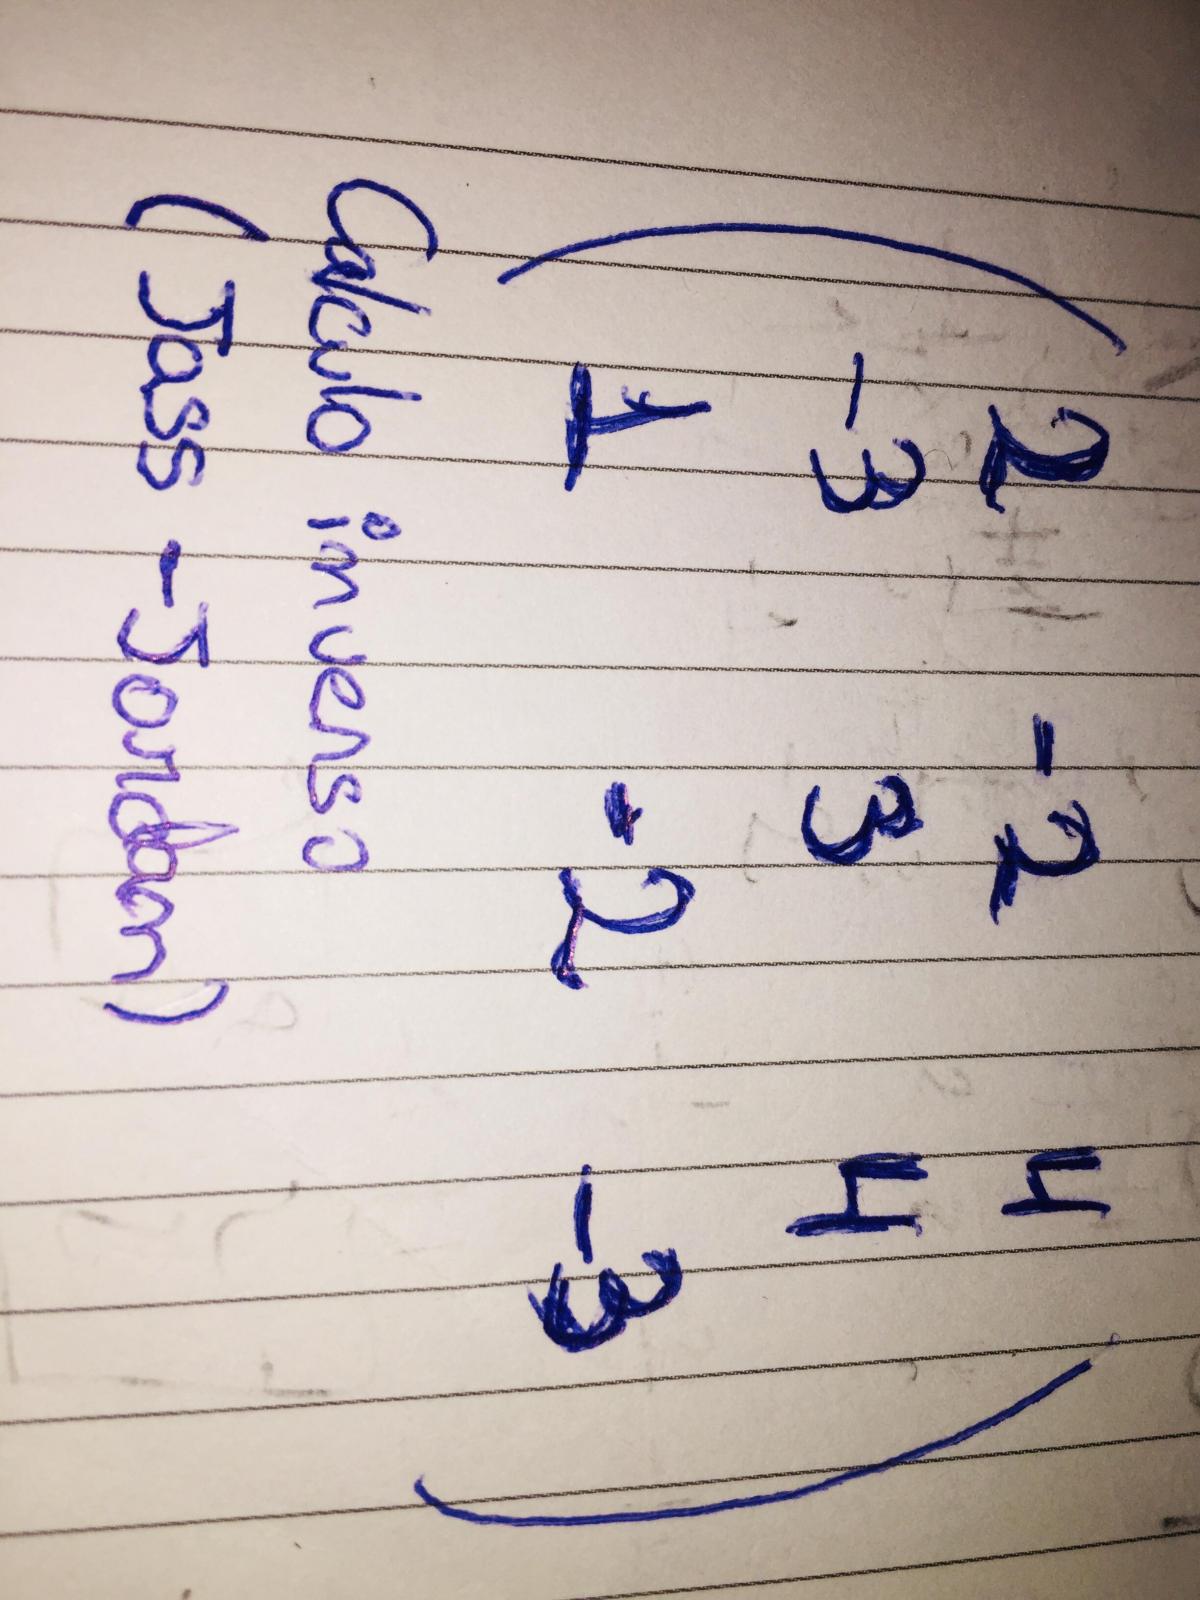 2 -2 4
-3 3 4
1 -2 -3
Calculo inverso
(Jass - Jordan)